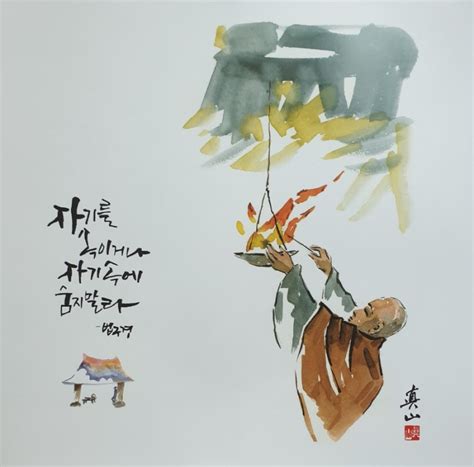 자기를
속이거나
자기속에
숨지말라
-법구경
真山